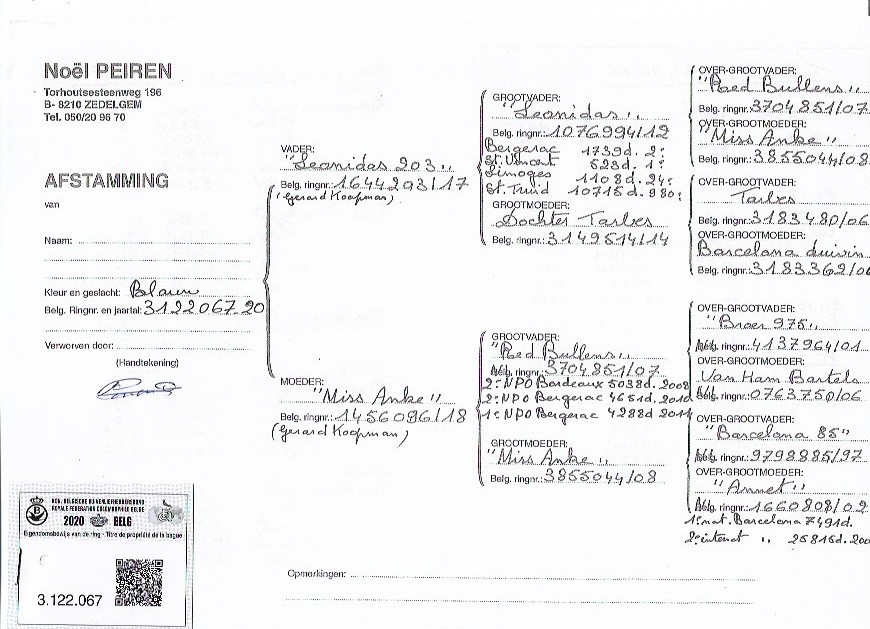 Noël PEIREN
Torhoutsesteenweg 196
B- 8210 ZEDELGEM
Tel. 050/20 96 70
AFSTAMMING
van
Naam:
Kleur en geslacht: Blauw
Belg. Ringnr. en jaartal: 3122067-20
Verworven door:
(Handtekening)
VADER:
"Leonidas 203"
Belg. ringnr.: 1644203/17
(Gerard Koopman)
MOEDER:
"Miss Anke"
Belg. ringnr.: 1456096/18
(Gerard Koopman)
GROOTVADER:
"Leonidas"
Belg. ringnr.: 1076994/12
Bergerac 1739d. 2e
St. Vincent 523d. 1e
Limoges 1108d. 24e
St. Truid 10715d. 980e
GROOTMOEDER:
Dochter Tarbes
Belg. ringnr.: 3149514/14
GROOTVADER:
"Red Bullens"
ringnr.: 3704851/07
2e NPO Bordeaux 5038d. 2008
2e NPO Bergerac 4651d. 2010
1e NPO Bergerac 4288d 2011
GROOTMOEDER:
"Miss Anke"
Belg. ringnr.: 3855044/08
OVER-GROOTVADER:
"Red Bullens"
Belg. ringnr.: 3704851/07
OVER-GROOTMOEDER:
"Miss Anke"
Belg. ringnr.: 3855044/08
OVER-GROOTVADER:
Tarbes
Belg. ringnr.: 3183480/06
OVER-GROOTMOEDER:
Barcelona duivin
Belg. ringnr.: 3183362/06
OVER-GROOTVADER:
"Broer 975"
ringnr.: 4137964/01
OVER-GROOTMOEDER:
Van Ham Bartels
ringnr.: 0763750/06
OVER-GROOTVADER:
"Barcelona 85"
ringnr.: 9798885/97
OVER-GROOTMOEDER:
"Annet"
ringnr.: 1660808/02
1e nat. Barcelona 7491d.
2e internat " 25815d. 200
Opmerkingen:
KON. BELGISCHE DUIVENLIEFHEBBERSBOND
ROYALE FEDERATION COLOMBOPHILE BELGE
2020 BELG
Eigendomsbewijs van de ring - Titre de propriété de la bague
3.122.067